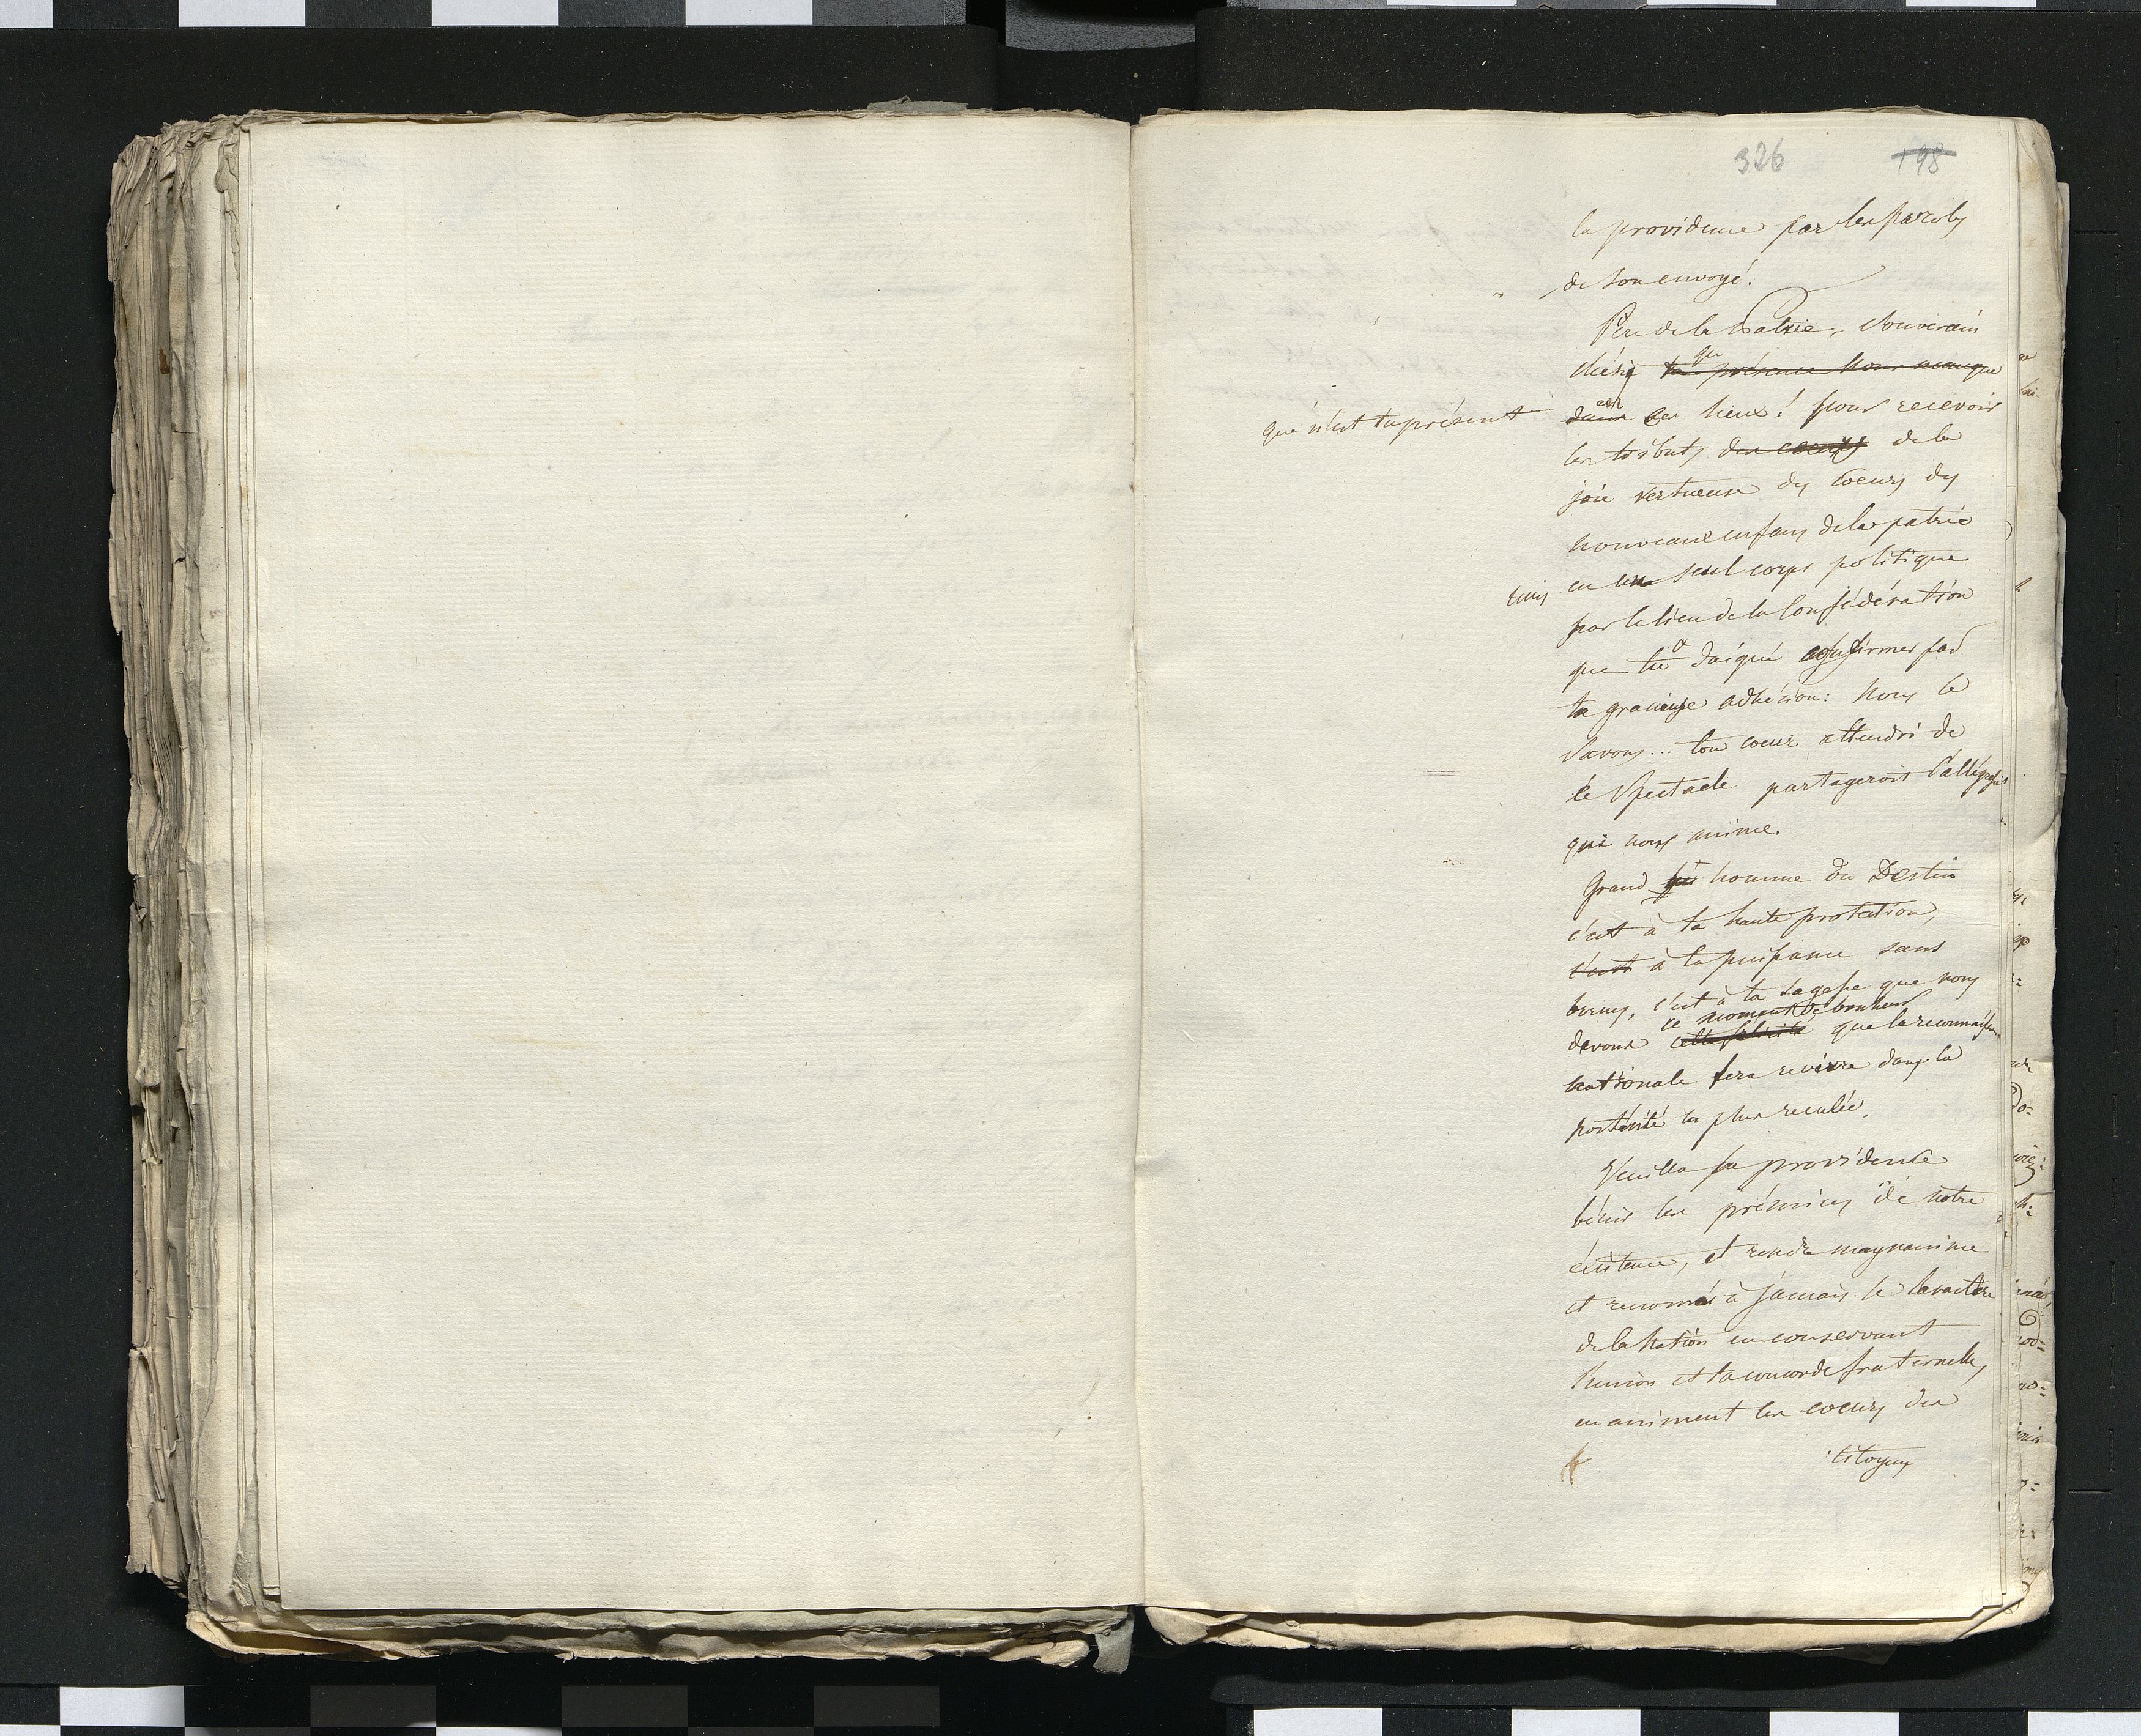 326 198
la providence par les paroles
de son envoyé.
Père de la Patrie, Souverain
chéri que ta présence nous manque
que n'est tu présent
dans en ces lieux! pour recevoir
les tributs des coeurs de la
joie vertueuse des coeurs des
nouveaux enfans de la patrie
réunis en un seul corps politique
par le lien de la Confédération
que tu a daigné confirmer par
ta gracieuse adhésion: nous le
savons... ton coeur attendri de
ce Spectacle partageroit l'allégresse
qui nous anime.
Grand homme du Destin
c'est à ta haute protection,
c'est à ta puissance sans
bornes, c'est à ta sagesse que nous
ce moment de bonheur
devons cette félicité que la reconnaissance
nationale fera revivre dans la
postérité la plus reculée.
Veuille la providence
bénir les prémices de notre
éxistence, et rendre magnanime
et renomé à jamais le caractère
de la Nation en conservant
l'union et la concorde fraternelle,
en animent les coeurs des
citoyens